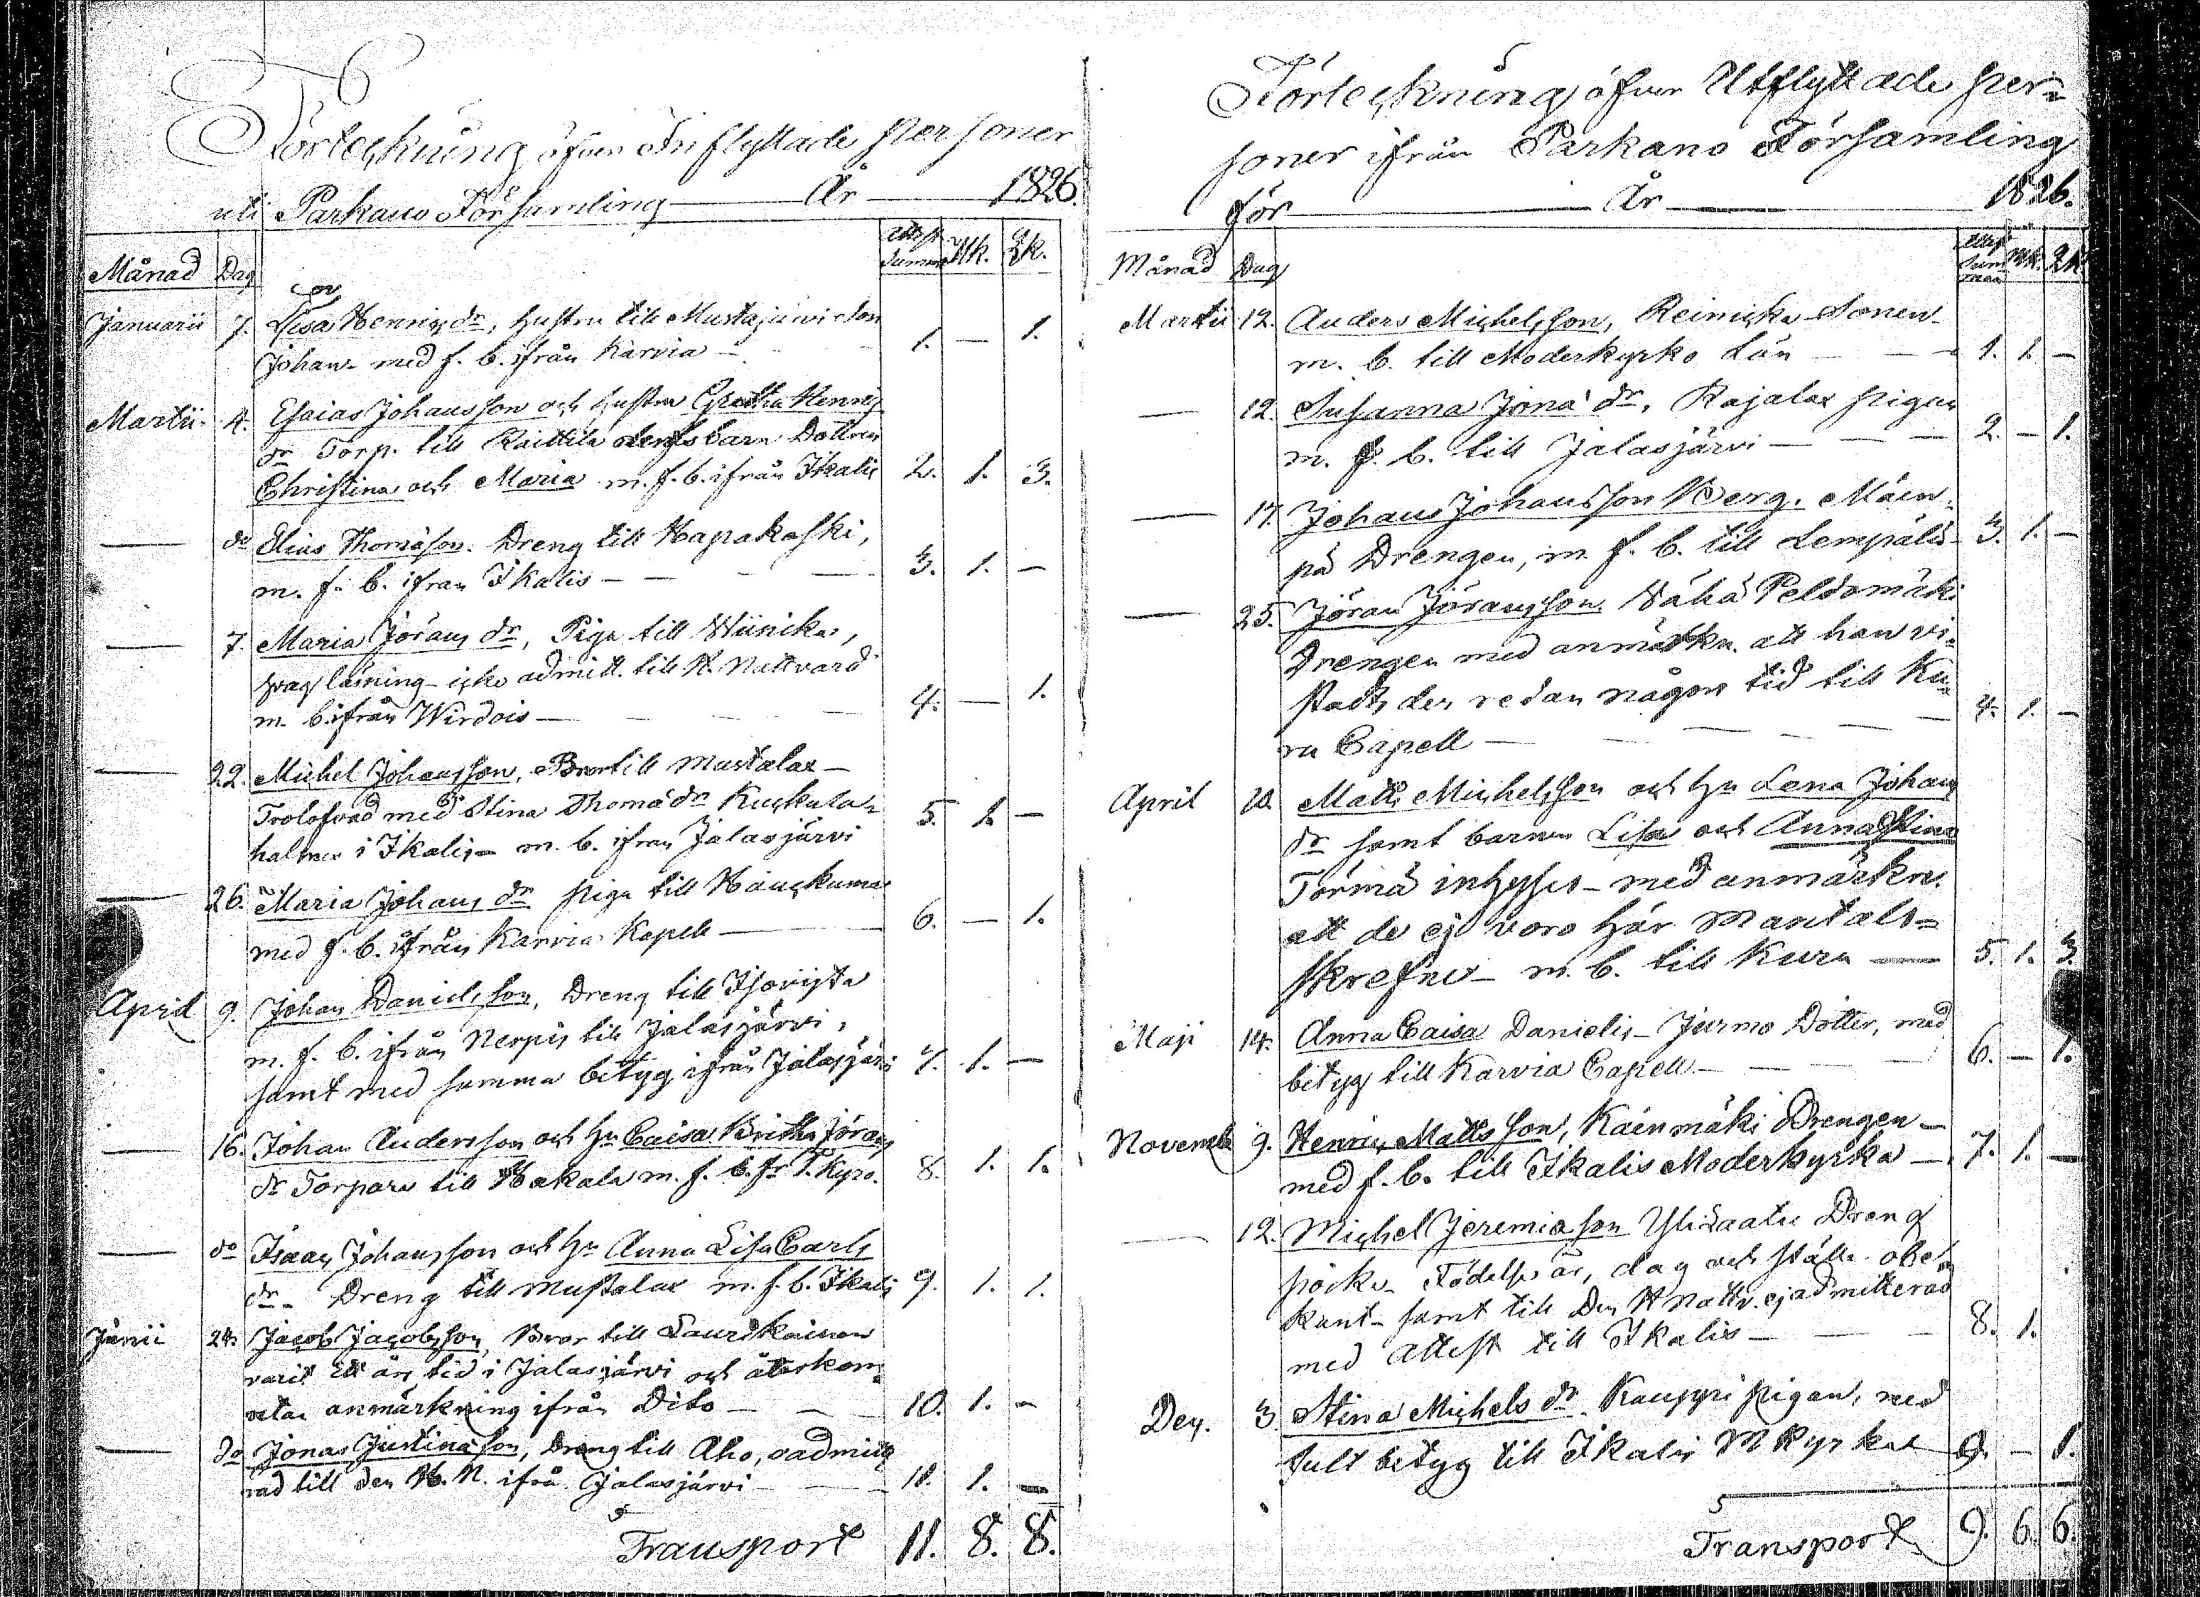 Förteckning öfver Inflyttade Personer
uti Parkano Församling År 1826.
Månad Dag Attest Summa Mk. Qk.
Januarii 7. Lisa Henricsdr, hustru till Mustajärvi Son
Johan med f. b. ifrån Karvia 1. — 1.
Martii 4. Esaias Johansson och hustru Gretha Henrics
dr Torp. till Raittila deras barn Döttrar
Christina och Maria m. f. b. ifrån Ikalis 2. 1. 3.
— do Elias Thomasson. Dreng till Hapakoski,
m. f. b. ifran Ikalis — 3. 1. —
— 7. Maria Jörans dr, Piga till Wiinika,
svag läsning icke admitt. till H. Nattvard
m. b. ifrån Wirdois — 4. — 1.
— 22. Michel Johansson, Bror till Mustalax —
Trolofvad med Stina Thomædr Kuckala
i Ikalis — m. b. ifran Jalasjärvi 5. 1. —
— 26. Maria Johans dr piga till
med f. b. ifrån Karvia Kapell — 6. — 1.
April 9. Johan Danielsson, Dreng till
m. f. b. ifrån Nerpis till Jalasjärvi,
samt med samma betyg ifrån Jalasjärvi 7. 1. —
— 16. Johan Andersson och hu Caisa Britha Jörans
dr Torpare till Hakala m. f. b. fr T. Kyro. 8. 1. 1.
do Isaac Johansson och hu Anna Lisa Carls
dr. Dreng till Mustalax m. f. b. Ikalis 9. 1. 1.
Junii 24. Jacob Jacobsson, Bror till Laurikainen
varit ett års tid i Jalasjärvi och återkom
utan anmärkning ifrån Dito — 10. 1. —
— do Jonas Justinasson, Dreng till Aho, oadmitte
rad till den H. N. ifrå. Jalasjärvi — 11. 1. —
Transport 11. 8. 8.
Förteckning öfver Utflyttade Per=
soner ifrån Parkano Församling
för År 1826.
Månad Dag Attest Summa Mk. Qk.
Martii 12. Anders Michelsson, Reinicka Sonen
m. b. till Moderkyrko Län — 1. 1. —
— 12. Susanna Jonæ dr, Rajalax pigan
m. f. b. till Jalasjärvi — 2. — 1.
— 17. Johan Johansson Berg. Mäen=
pä Drengen, m. f. b. till Lempälä 3. 1. —
— 25. Jöran Jöransson Vähä Peldomäki
Drengen med anmärkn. att han vi=
stads der redan någon tid till Ku=
ru Capell — 4. 1. —
April 10. Matts Michelsson och hu Lena Johans
dr samt barnen Lisa och Anna Stina
Törmä inhyses — med anmärkn.
att de ej voro här Mantals=
skrefne — m. b. till Kuru — 5. 1. 3.
Maji 14. Anna Caisa Danielis — Jurmo Dotter, med
betyg till Karvia Capell — 6. — 1.
Novembr 9. Henric Mattsson, Käinmäki Drengen —
med f. b. till Ikalis Moderkyrka — 7. 1. —
— 12. Michel Jeremiasson Dreng
Födelse år, dag och ställe obe=
kant — samt till Den H Nattv. ej admitterad
med attest till Ikalis — 8. 1.
Dec. 3. Stina Michels dr. Kauppi pigan, med
fult betyg till Ikalis M Kyrka 9. — 1.
Transport 9. 6. 6.